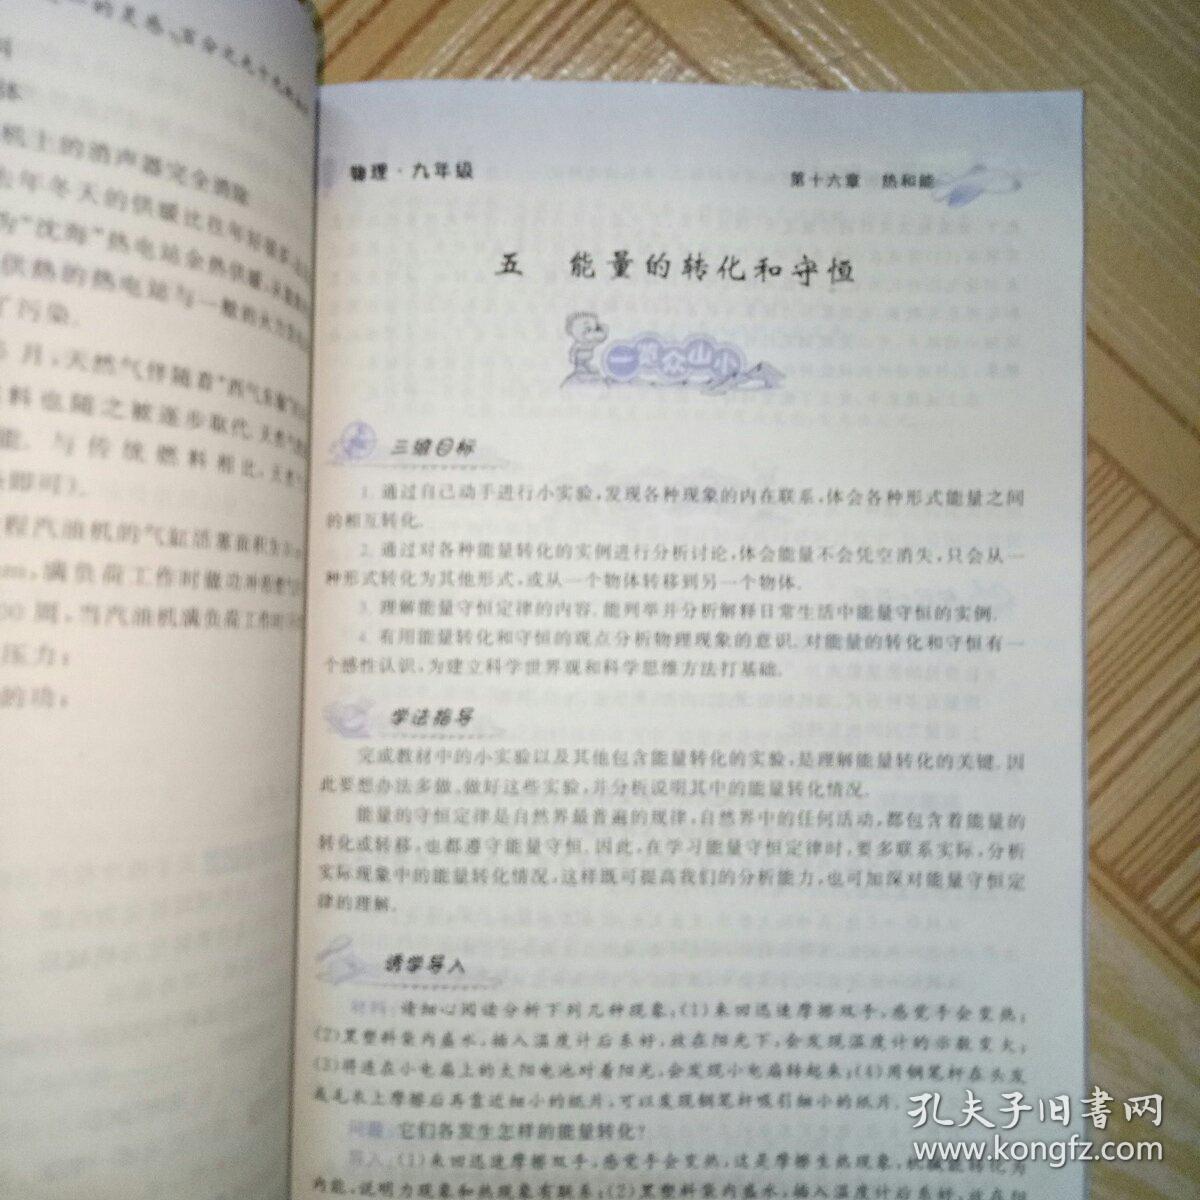 机上的消声器完全消除
去年冬天的供暖比往年
为“沈海”热电站余热供暖
供热的热电站与一般的火力
了污染.
5月,天然气伴随着“西气东输”
料也随之被逐步取代.天然气
能.与传统燃料相比,天然
即可).
程汽油机的气缸活塞面积为
满负荷工作时做功冲程燃气
00周,当汽油机满负荷工作时
压力;
的功;
物理·九年级
第十六章 热和能
五 能量的转化和守恒
一览众山小
三维目标
1.通过自己动手进行小实验,发现各种现象的内在联系,体会各种形式能量之间
的相互转化.
2.通过对各种能量转化的实例进行分析讨论,体会能量不会凭空消失,只会从一
种形式转化为其他形式,或从一个物体转移到另一个物体.
3.理解能量守恒定律的内容.能列举并分析解释日常生活中能量守恒的实例.
4.有用能量转化和守恒的观点分析物理现象的意识.对能量的转化和守恒有一
个感性认识,为建立科学世界观和科学思维方法打基础.
学法指导
完成教材中的小实验以及其他包含能量转化的实验,是理解能量转化的关键.因
此要想办法多做、做好这些实验,并分析说明其中的能量转化情况.
能量的守恒定律是自然界最普遍的规律,自然界中的任何活动,都包含着能量的
转化或转移,也都遵守能量守恒.因此,在学习能量守恒定律时,要多联系实际,分析
实际现象中的能量转化情况,这样既可提高我们的分析能力,也可加深对能量守恒定
律的理解.
诱学导入
材料:请细心阅读分析下列几种现象:(1)来回迅速摩擦双手,感觉手会变热;
(2)黑塑料袋内盛水,插入温度计后系好,放在阳光下,会发现温度计的示数变大;
(3)将连在小电扇上的太阳电池对着阳光,会发现小电扇转起来;(4)用钢笔杆在头发
或毛衣上摩擦后再靠近细小的纸片,可以发现钢笔杆吸引细小的纸片.
问题:它们各发生怎样的能量转化?
导入:(1)来回迅速摩擦双手,感觉手会变热,这是摩擦生热现象,机械能转化为
内能,说明力现象和热现象有联系;(2)黑塑料袋内盛水,插入温度计后系好,放在阳
孔夫子旧书网
www.kongfz.com